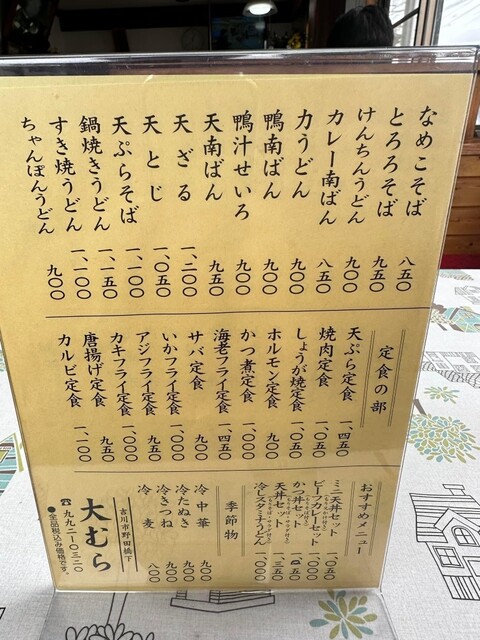 なめこそば 八五〇
とろろそば 九五〇
けんちんうどん 九〇〇
カレー南ばん 八五〇
力うどん 九〇〇
鴨南ばん 九〇〇
鴨汁せいろ 九〇〇
天南ばん 九五〇
天ざる 一、二〇〇
天とじ 一、〇五〇
天ぷらそば 一、〇〇〇
鍋焼きうどん 一、一五〇
すき焼うどん 一、一〇〇
ちゃんぽんうどん 九〇〇
定食の部
天ぷら定食 一、四五〇
焼肉定食 一、〇五〇
しょうが焼定食 一、〇五〇
ホルモン定食 九〇〇
かつ煮定食 一、〇〇〇
海老フライ定食 一、四五〇
サバ定食 九〇〇
いかフライ定食 一、〇〇〇
アジフライ定食 九五〇
カキフライ定食 一、〇〇〇
唐揚げ定食 九五〇
カルビ定食 一、一〇〇
おすすめメニュー
ミニ天丼セット 一、〇五〇
ビーフカレーセット 一、〇〇〇
かつ丼セット
天丼セット 一、三五〇
冷しスタミナうどん 一、〇〇〇
季節物
冷中華 九〇〇
冷たぬき 九〇〇
冷きつね 九〇〇
冷麦 八〇〇
吉川市野田橋下
大むら
☎九九二―〇三二〇
●全品税込み価格です。